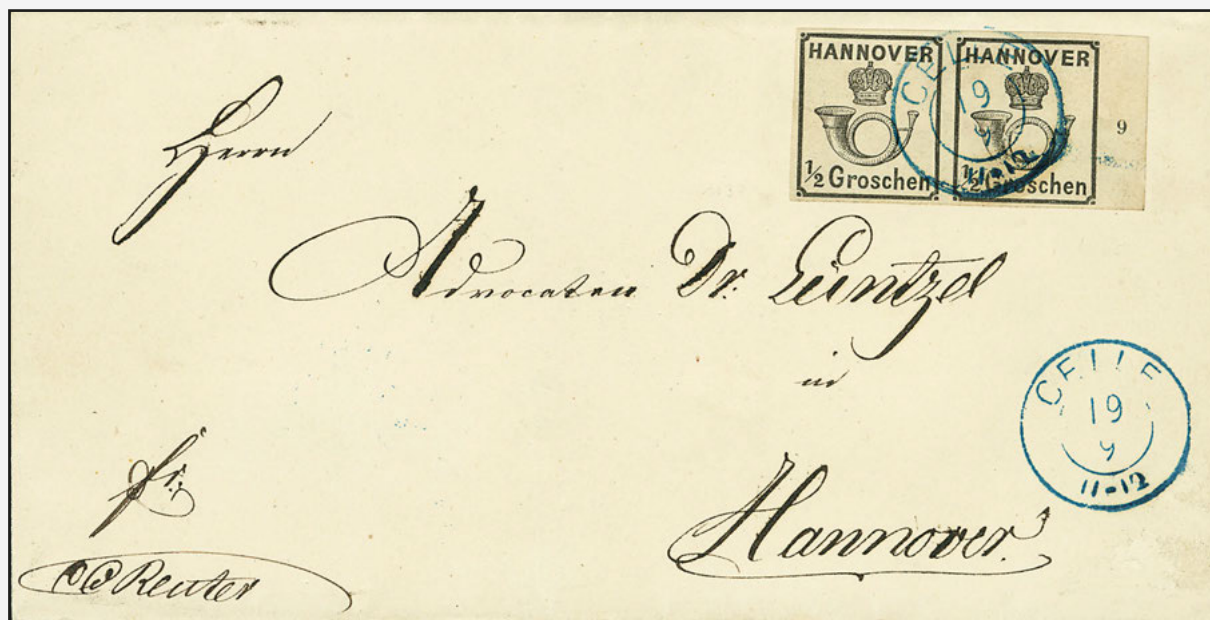 HANNOVER HANNOVER
½ Groschen ½ Groschen
9
CELLE
19
9
11-12
Herrn
Advocaten Dr. Lüntzel
in
CELLE
19
9
11-12
fr.
Hannover.
Reuter